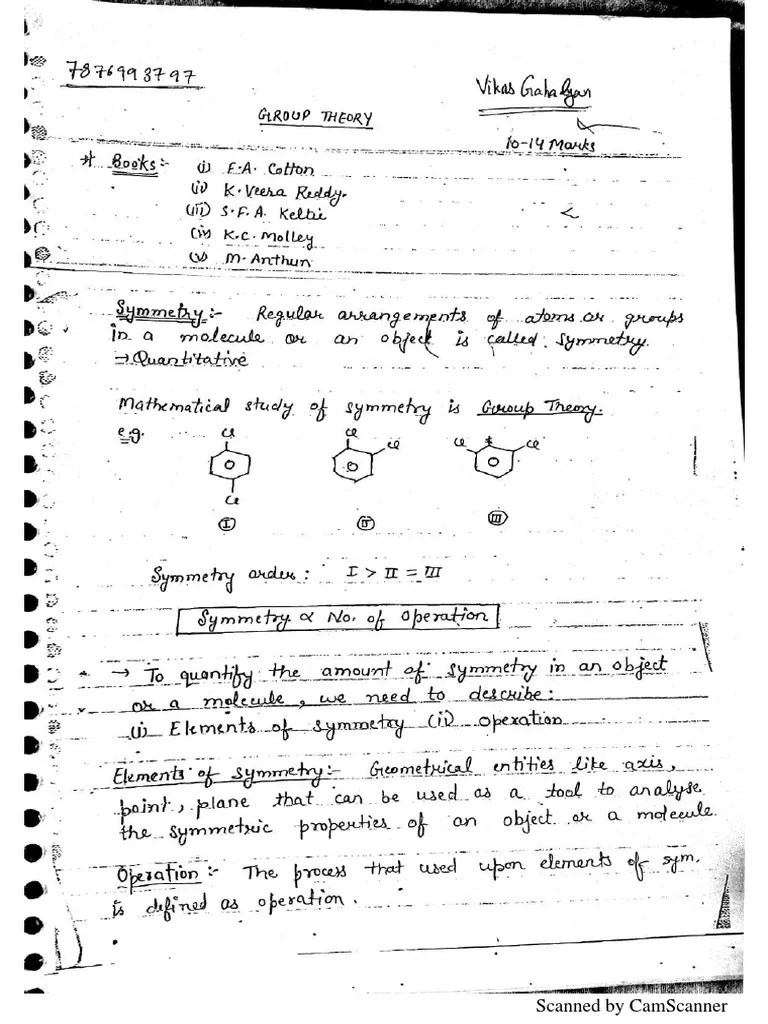 7876993797
Vikas Gahalyan
GROUP THEORY
10-14 Marks
* Books:- (i) F.A. Cotton
(ii) K. Veera Reddy.
(iii) S.F.A. Kettle
(iv) K.C. Molley
(v) M. Anthun
Symmetry:- Regular arrangements of atoms or groups
in a molecule or an object is called symmetry.
→ Quantitative
Mathematical study of symmetry is Group Theory.
e.g. Cl Cl Cl Cl Cl
Cl
I II III
Symmetry order: I > II = III
Symmetry ∝ No. of Operation
→ To quantify the amount of symmetry in an object
or a molecule, we need to describe:
(i) Elements of symmetry (ii) Operation
Elements of symmetry:- Geometrical entities like axis,
point, plane that can be used as a tool to analyse
the symmetric properties of an object or a molecule.
Operation:- The process that used upon elements of sym.
is defined as operation.
Scanned by CamScanner